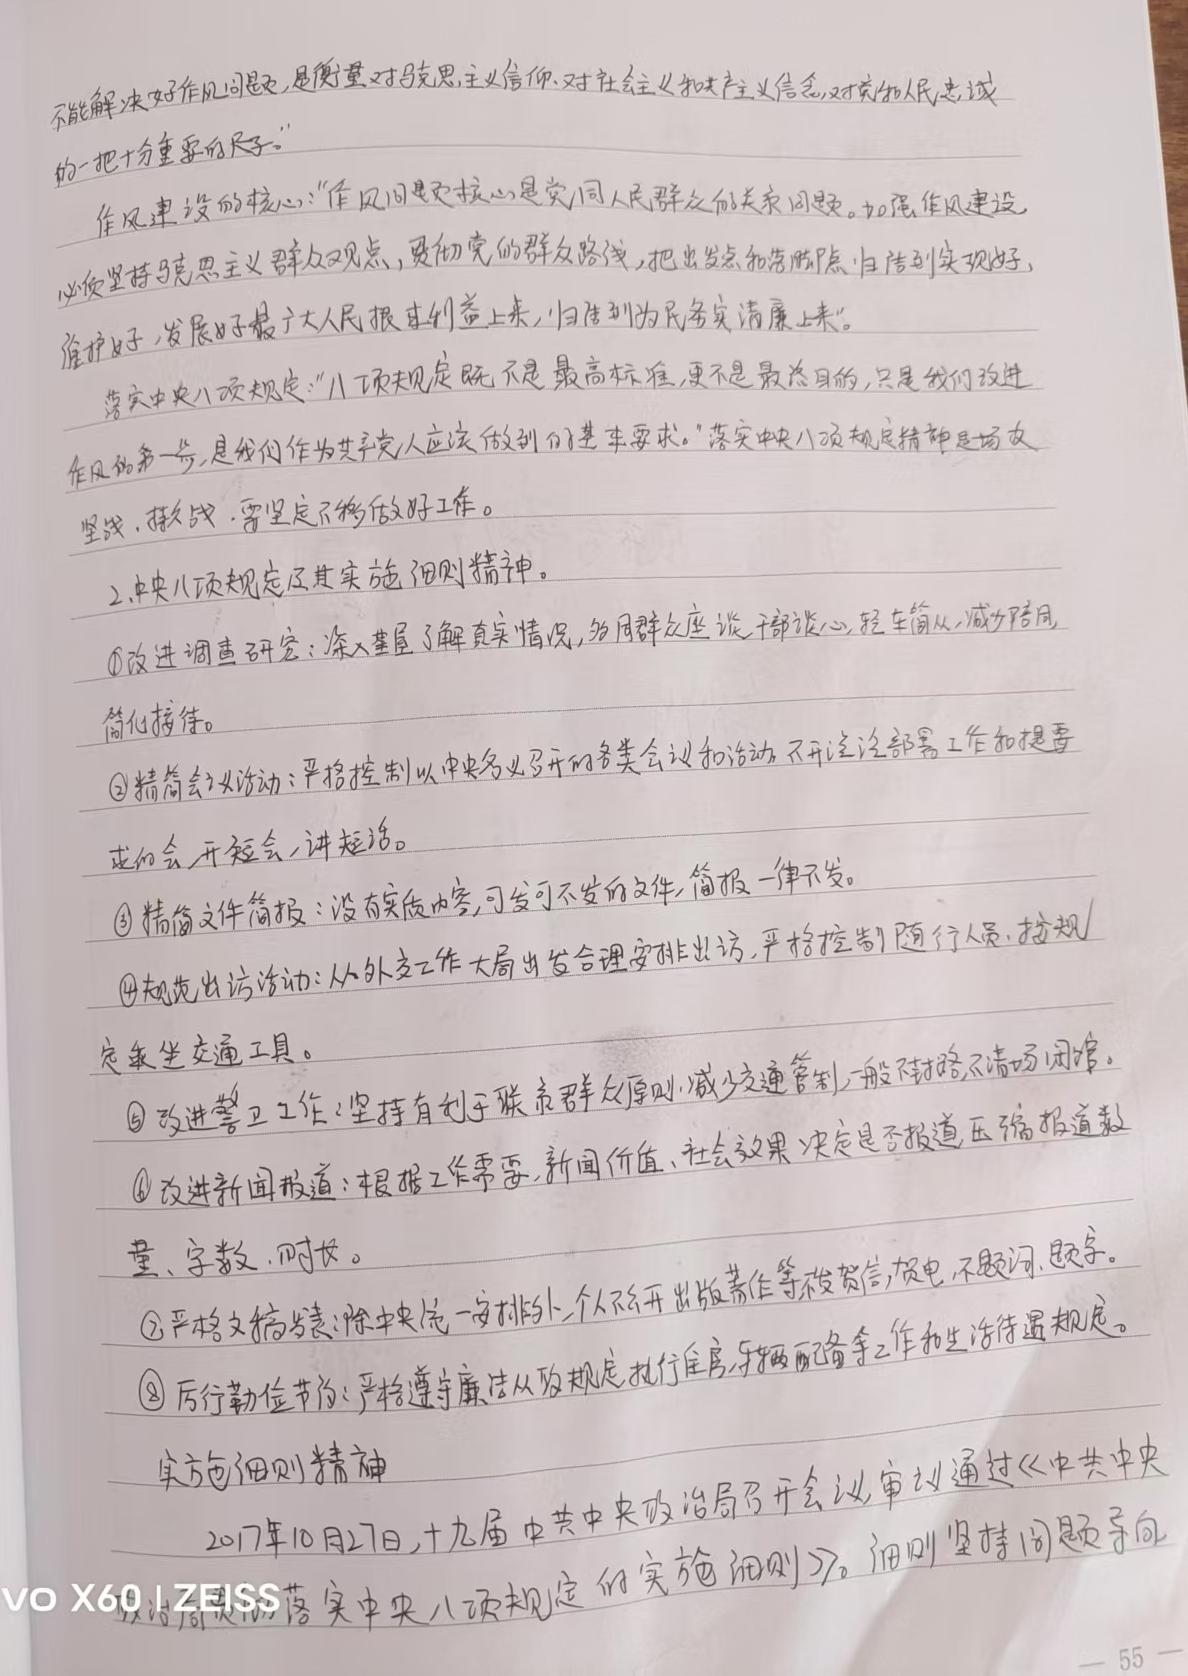 不能解决好作风问题，是衡量对马克思主义信仰、对社会主义和共产主义信念，对党和人民忠诚
的一把十分重要的尺子。"
作风建设的核心："作风问题核心是党同人民群众的关系问题。加强作风建设，
必须坚持马克思主义群众观点，贯彻党的群众路线，把出发点和落脚点归结到实现好，
维护好，发展好最广大人民根本利益上来，归结到为民务实清廉上来"。
落实中央八项规定："八项规定既不是最高标准，更不是最终目的，只是我们改进
作风的第一步，是我们作为共产党人应该做到的基本要求。"落实中央八项规定精神是场攻
坚战、持久战，要坚定不移做好工作。
2、中央八项规定及其实施细则精神。
①改进调查研究：深入基层了解真实情况，多同群众座谈，干部谈心，轻车简从，减少陪同，
简化接待。
②精简会议活动：严格控制以中央名义召开的各类会议和活动，不开泛泛部署工作和提要
求的会，开短会，讲短话。
③精简文件简报：没有实质内容，可发可不发的文件，简报一律不发。
④规范出访活动：从外交工作大局出发合理安排出访，严格控制随行人员，按规
定乘坐交通工具。
⑤改进警卫工作：坚持有利于联系群众原则，减少交通管制，一般不封路，不清场闭馆。
⑥改进新闻报道：根据工作需要，新闻价值、社会效果决定是否报道，压缩报道数
量、字数、时长。
⑦严格文稿发表：除中央统一安排外，个人不公开出版著作等，不发贺信，贺电，不题词、题字。
⑧厉行勤俭节约：严格遵守廉洁从政规定，执行住房，车辆配备等工作和生活待遇规定。
实施细则精神
2017年10月27日，十九届中共中央政治局召开会议，审议通过《中共中央
政治局贯彻落实中央八项规定的实施细则》。细则坚持问题导向
vo X60 | ZEISS
— 55 —